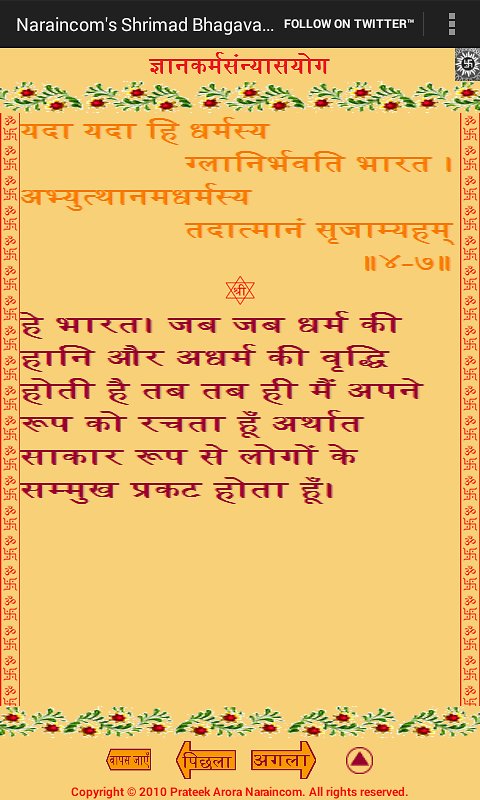 Naraincom's Shrimad Bhagava... FOLLOW ON TWITTER™
ज्ञानकर्मसंन्यासयोग
यदा यदा हि धर्मस्य
ग्लानिर्भवति भारत ।
अभ्युत्थानमधर्मस्य
तदात्मानं सृजाम्यहम्
॥४-७॥
श्री
हे भारत। जब जब धर्म की
हानि और अधर्म की वृद्धि
होती है तब तब ही मैं अपने
रूप को रचता हूँ अर्थात
साकार रूप से लोगों के
सम्मुख प्रकट होता हूँ।
वापस जाएँ पिछला अगला
Copyright © 2010 Prateek Arora Naraincom. All rights reserved.